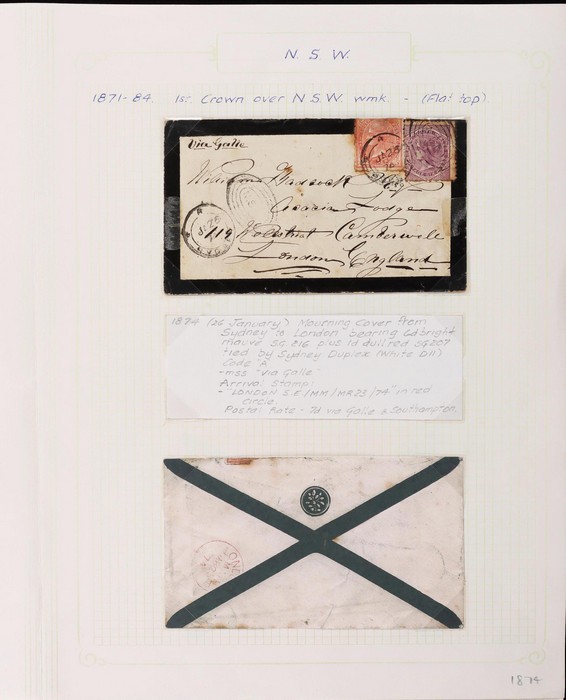 N. S. W.
1871-84. 1st. Crown over N S W. wmk. - (Flat top)
Via Galle
William
Acacia Lodge
119 Camberwell
London England
JA 26
SYDNEY
1874 (26 January) Mourning Cover from
Sydney to London bearing 6d bright
mauve SG 216 plus 1d dull red SG207
tied by Sydney Duplex (White D11)
Code "A"
-mss "Via Galle"
Arrival Stamp:
- "LONDON S.E/MM/MR23/74" in red
circle.
Postal Rate - 7d via Galle & Southampton.
LOND
1874